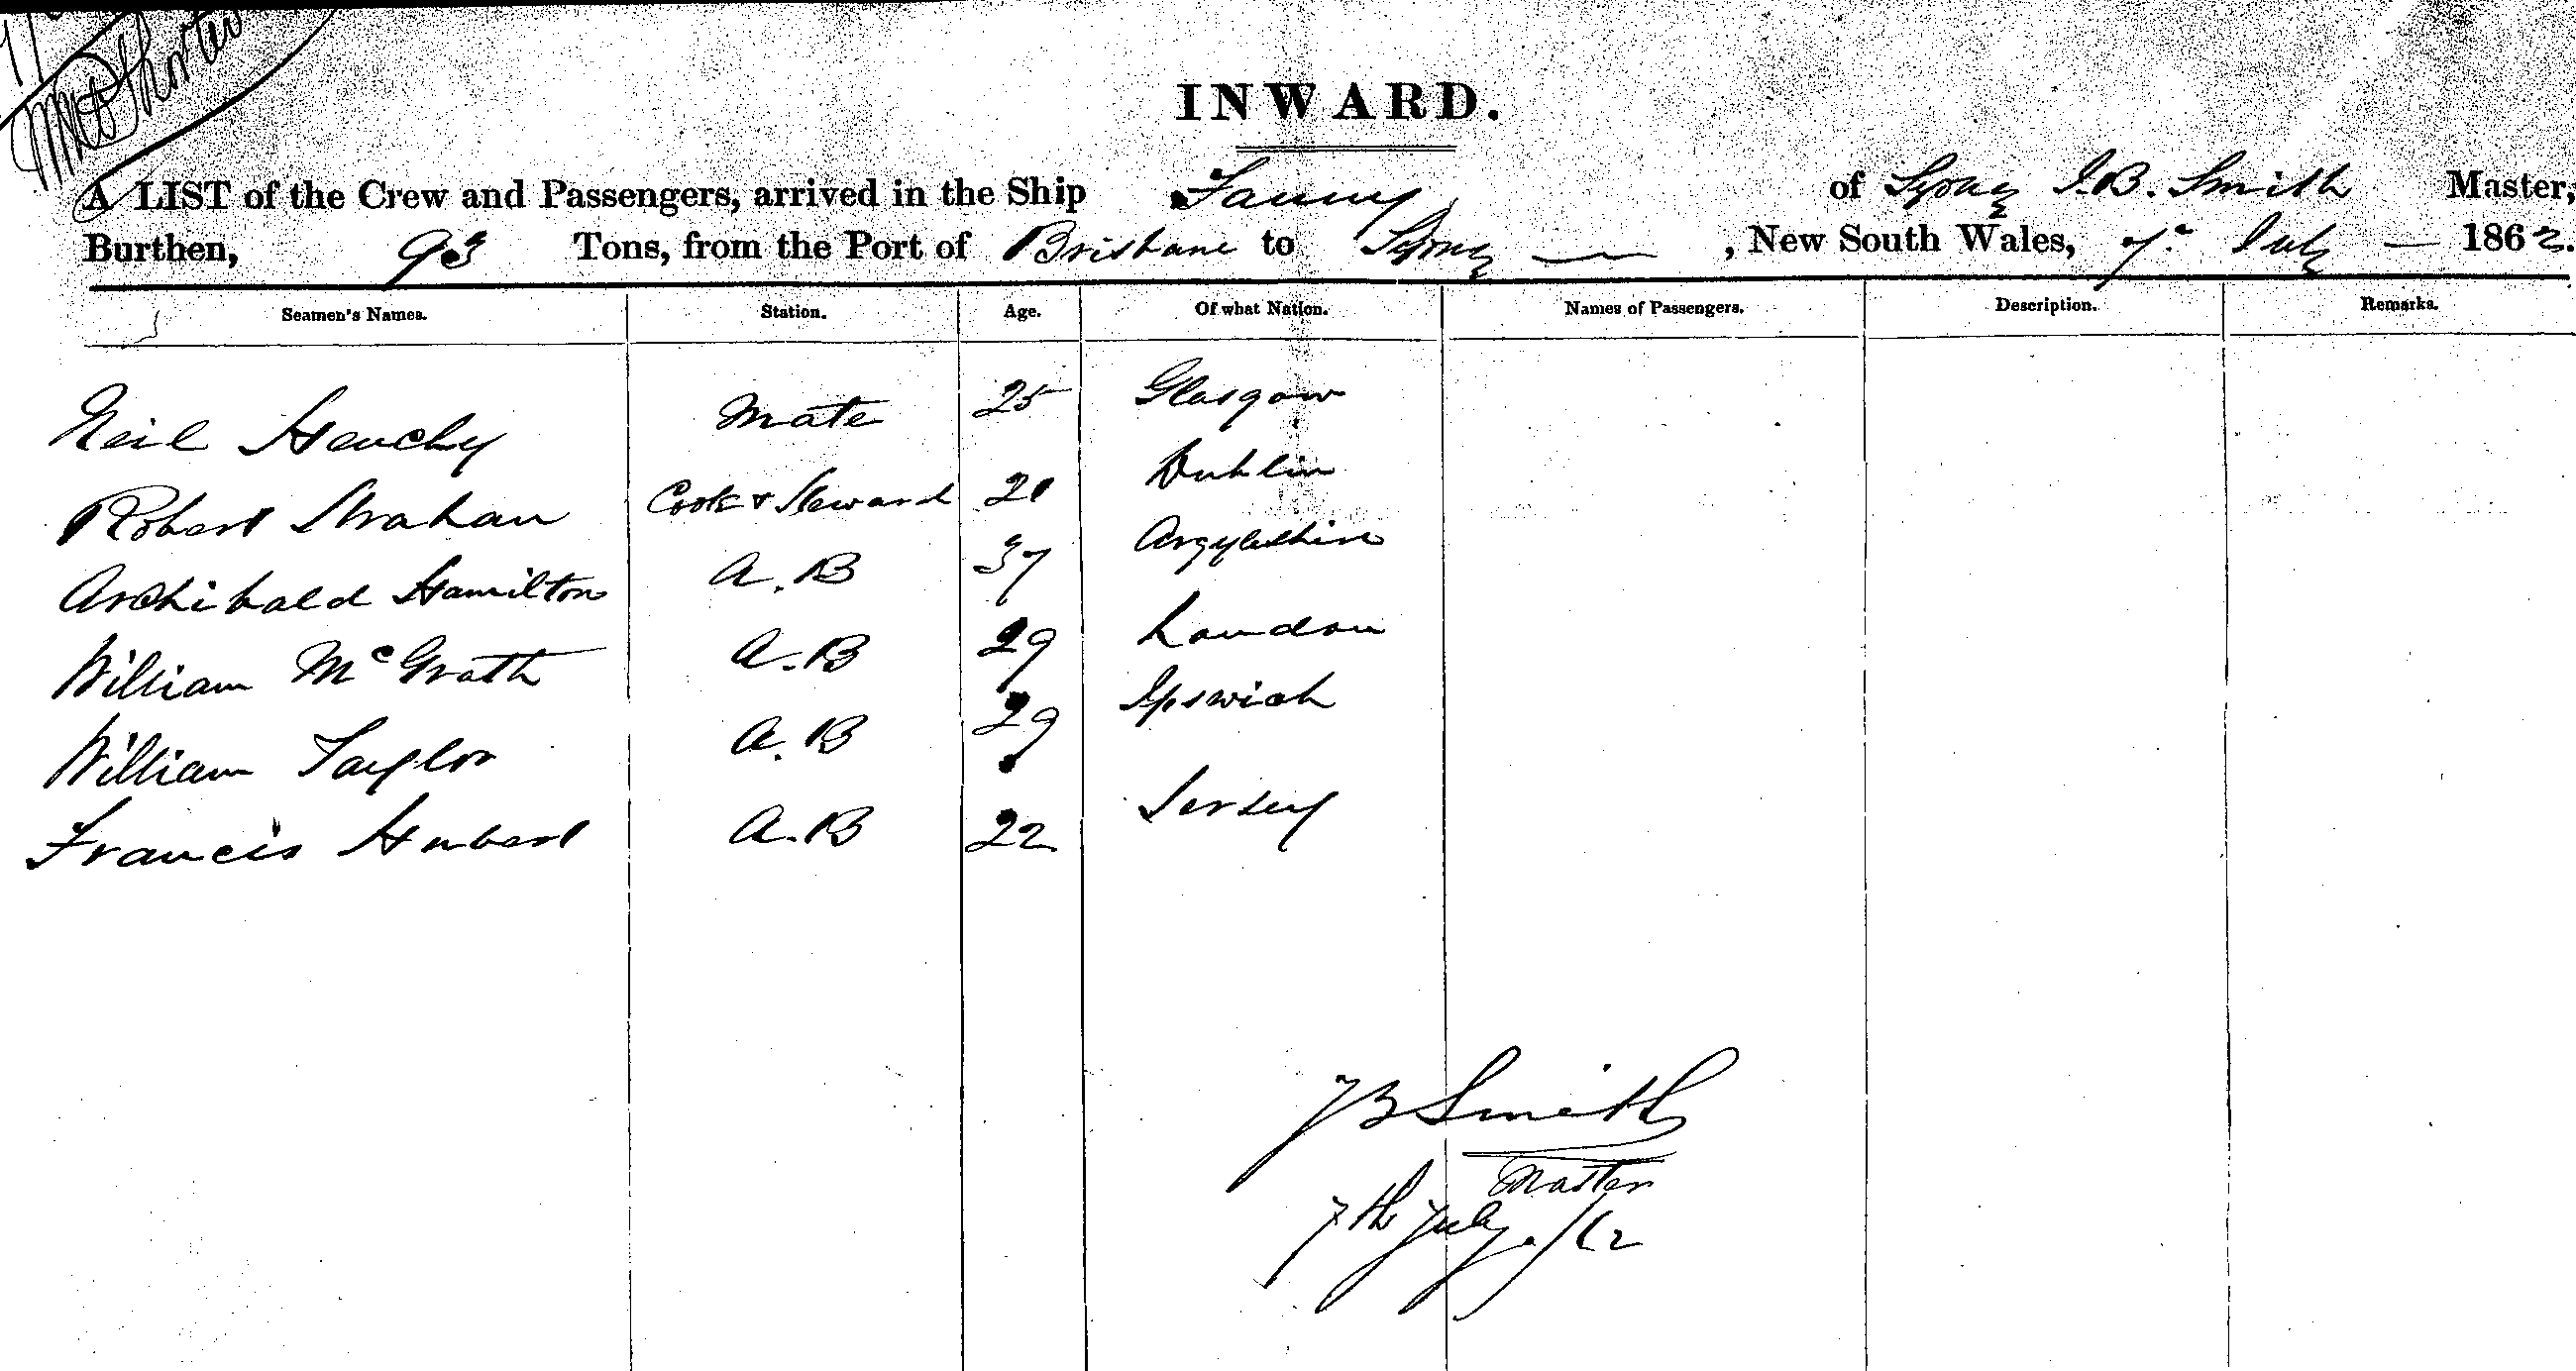 INWARD.
A LIST of the Crew and Passengers, arrived in the Ship Fanny of Sydney J.B. Smith Master,
Burthen, 93 Tons, from the Port of Brisbane to Sydney — , New South Wales, 7th July — 1862.
Seamen's Names. Station. Age. Of what Nation. Names of Passengers. Description. Remarks.
Neil Mate 25 Glasgow
Robert Strahan Cook & Steward 21 Dublin
Archibald Hamilton A.B 37 Argyleshire
William McGrath A.B 29 London
William Taylor A.B 29 Ipswich
Francis Hubert A.B 22 Jersey
JB Smith
Master
7th July /62